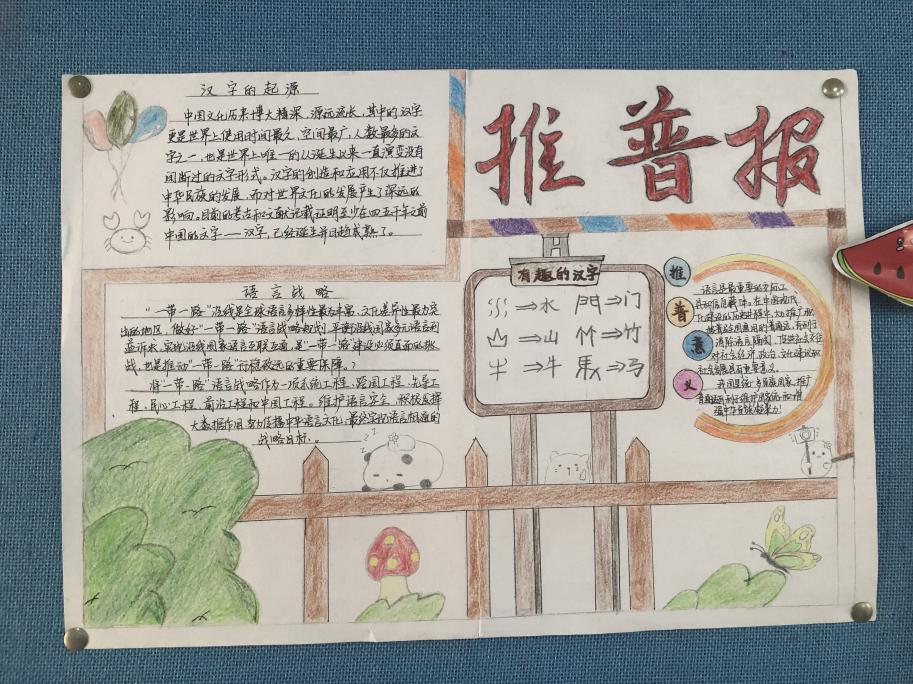 汉字的起源
中国文化历来博大精深、源远流长,其中的汉字
更是世界上使用时间最久、空间最广、人数最多的文
字之一,也是世界上唯一的从诞生以来一直演变没有
间断过的文字形式。汉字的创造和应用不仅推进了
中华民族的发展,而对世界文化的发展产生了深远的
影响。目前的考古和文献记载证明至少在四五千年之前
中国的文字——汉字,已经诞生并日趋成熟了。
推普报
语言战略
"一带一路"沿线是全球语言多样性最为丰富、文化差异性最为突
出的地区,做好"一带一路"语言战略规划,平衡沿线国家多元语言利
益诉求,实现沿线国家语言互联互通,是"一带一路"建设必须直面的挑
战,也是推动"一带一路"行稳致远的重要保障。
将"一带一路"语言战略作为一项系统工程、跨国工程、先导工
程、民心工程、前沿工程和牢固工程。维护语言安全,积极发挥
大数据作用,努力传播中华语言文化,最终实现语言相通的
战略目标。
有趣的汉字
⇒水 門⇒门
⇒山 竹⇒竹
⇒牛 馬⇒马
推
普
意
义
语言是最重要的交际工
具和信息载体。在中国现代
化建设的历史进程中,大力推广、积
极普及全国通用的普通话,有利于
消除语言隔阂,促进社会交往
对社会经济、政治、文化建设和
社会发展具有重要意义。
我国是统一多民族国家,推广
zzz